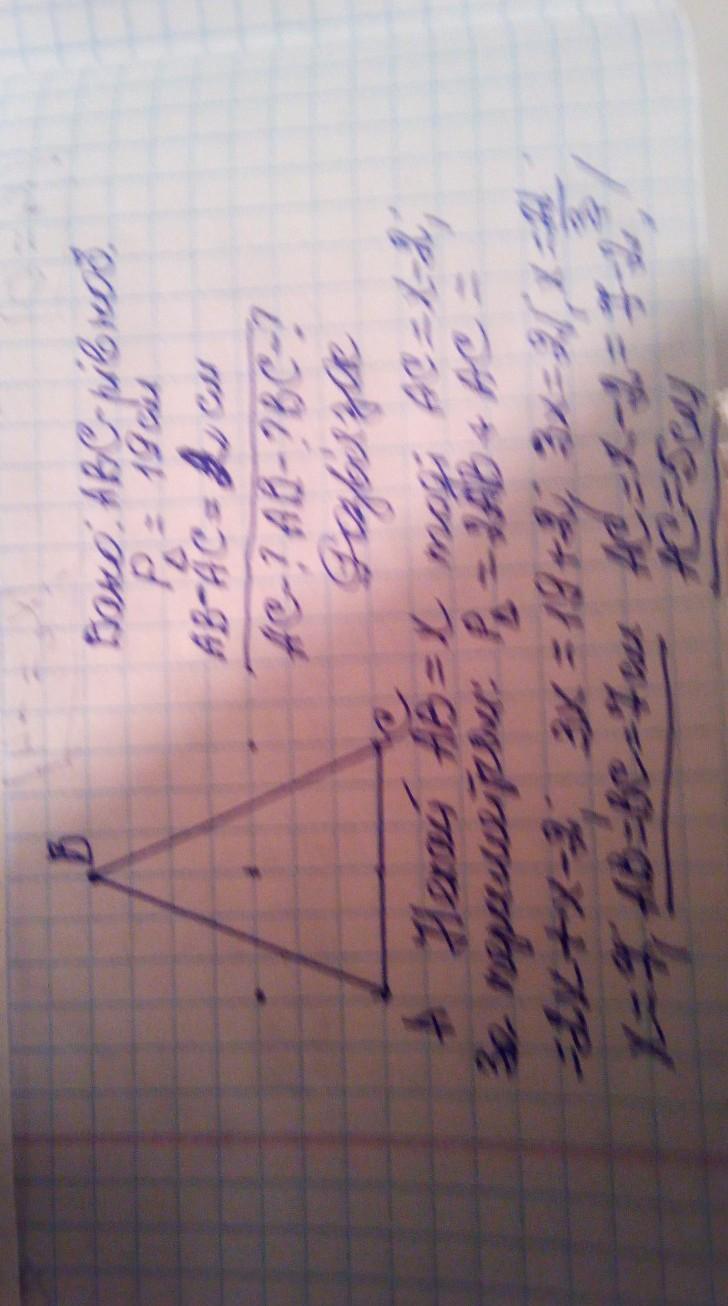 B
A
C
Дано: ABC-рівноб.
P△ = 19см
AB-AC = 2 см
AC-? AB-? BC-?
Розв'язок
Нехай AB = x тоді AC = x-2;
За периметром: P△ = 2AB + AC =
=2x+x-2; 3x = 19+2; 3x = 21; x = 21/3;
x=7; AB=BC=7см AC=x-2=7-2;
AC=5см